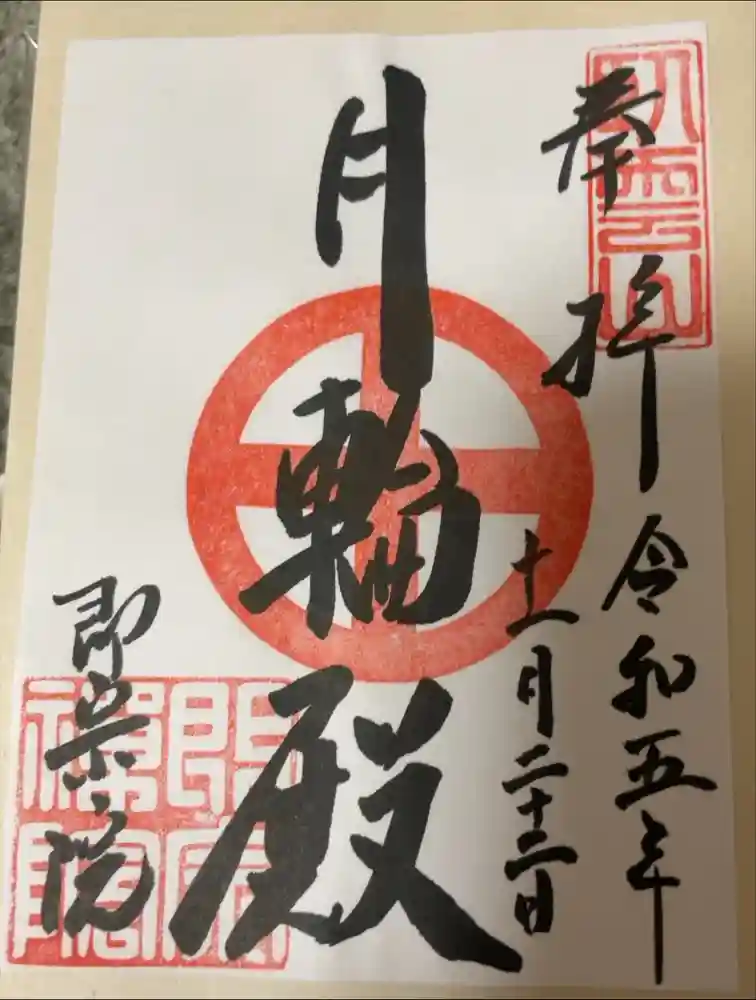 奉拝
令和五年
十一月二十二日
月輪殿
即宗院